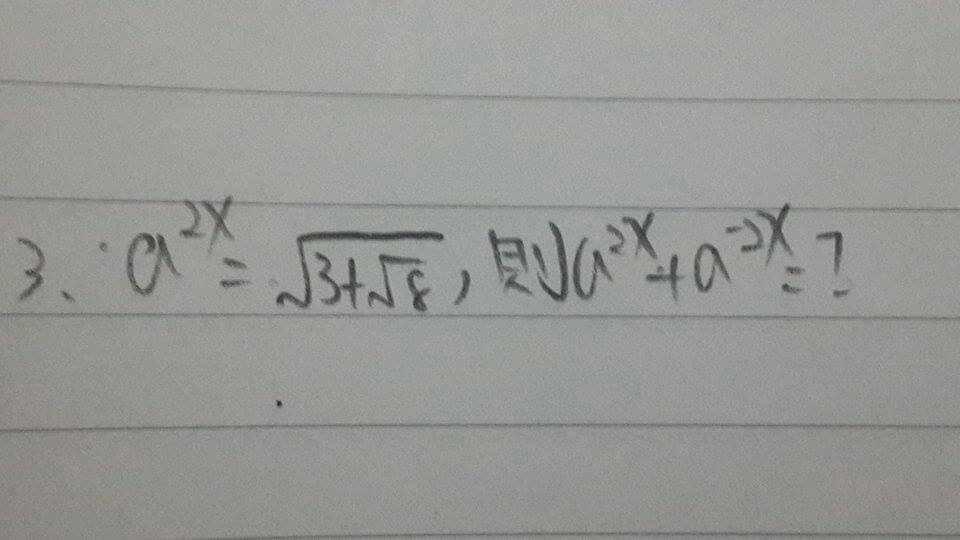 3、a^{2x} = √(3+√8)，則 a^{2x} + a^{-2x} = ?